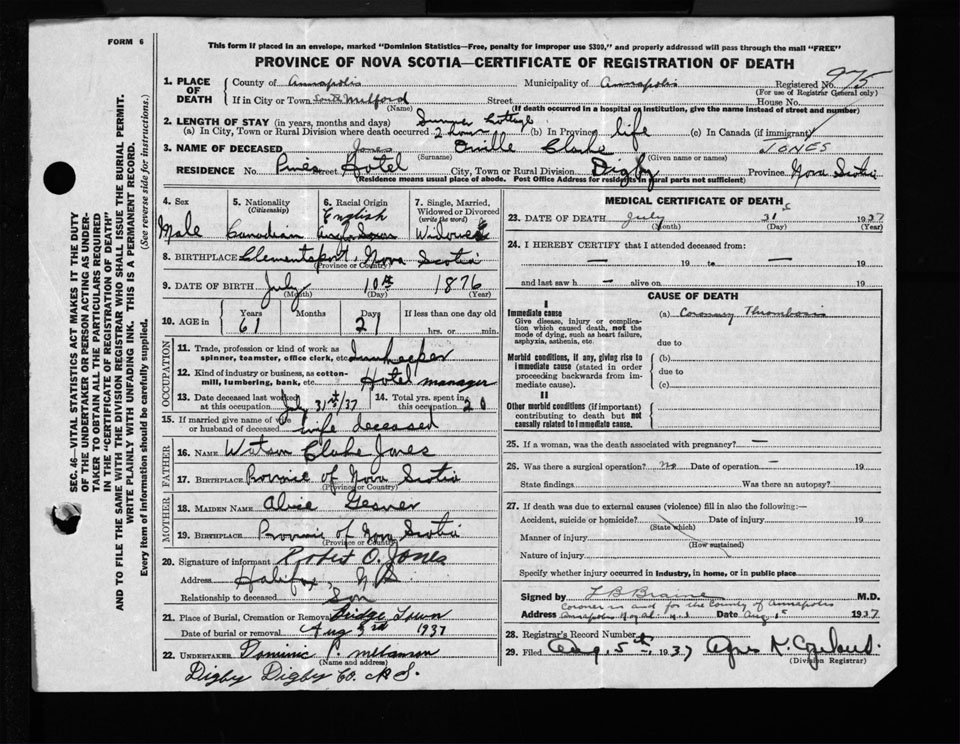 FORM 6
This form if placed in an envelope, marked "Dominion Statistics—Free, penalty for improper use $300," and properly addressed will pass through the mail "FREE"
PROVINCE OF NOVA SCOTIA—CERTIFICATE OF REGISTRATION OF DEATH
1. PLACE OF DEATH
County of Annapolis Municipality of Annapolis Registered No. 975
(For use of Registrar General only)
If in City or Town South Milford Street House No.
(Name) (If death occurred in a hospital or institution, give the name instead of street and number)
2. LENGTH OF STAY (in years, months and days) Summer Cottage
(a) In City, Town or Rural Division where death occurred 2 hours (b) In Province life (c) In Canada (if immigrant)
3. NAME OF DECEASED Jones Orville Clarke JONES
(Surname) (Given name or names)
RESIDENCE No. Pines Street Hotel City, Town or Rural Division Digby Province Nova Scotia
(Residence means usual place of abode. Post Office Address for residents in rural parts not sufficient)
4. Sex Male
5. Nationality (Citizenship) Canadian
6. Racial Origin English
7. Single, Married, Widowed or Divorced (write the word) Widowed
8. BIRTHPLACE Clementsport, Nova Scotia
(Province or Country)
9. DATE OF BIRTH July 10th 1876
(Month) (Day) (Year)
10. AGE in Years 61 Months Days 21 If less than one day old
hrs. or min.
OCCUPATION
11. Trade, profession or kind of work as spinner, teamster, office clerk, etc. Innkeeper
12. Kind of industry or business, as cotton-mill, lumbering, bank, etc. Hotel manager
13. Date deceased last worked at this occupation July 31st/37
14. Total yrs. spent in this occupation 20
15. If married give name of wife or husband of deceased wife deceased
FATHER
16. NAME Watson Clarke Jones
17. BIRTHPLACE Province of Nova Scotia
(Province or Country)
MOTHER
18. MAIDEN NAME Alice Gesner
19. BIRTHPLACE Province of Nova Scotia
(Province or Country)
20. Signature of informant Robert O. Jones
Address Halifax, N.S.
Relationship to deceased Son
21. Place of Burial, Cremation or Removal Bridge Town
Date of burial or removal Aug 3rd 1937
22. UNDERTAKER Dominic P. Melanson
(Name and address)
Digby Digby Co. N.S.
MEDICAL CERTIFICATE OF DEATH
23. DATE OF DEATH July 31st 1937
(Month) (Day) (Year)
24. I HEREBY CERTIFY that I attended deceased from:
— 19 to — 19
and last saw h — alive on 19
CAUSE OF DEATH
I
Immediate cause
Give disease, injury or complication which caused death, not the mode of dying, such as heart failure, asphyxia, asthenia, etc.
(a) Coronary Thrombosis
due to
Morbid conditions, if any, giving rise to immediate cause (stated in order proceeding backwards from immediate cause).
(b)
due to
(c)
II
Other morbid conditions (if important) contributing to death but not causally related to immediate cause.
25. If a woman, was the death associated with pregnancy? —
26. Was there a surgical operation? no Date of operation — 19
State findings Was there an autopsy?
27. If death was due to external causes (violence) fill in also the following:—
Accident, suicide or homicide? Date of injury 19
(State which)
Manner of injury
(How sustained)
Nature of injury
Specify whether injury occurred in industry, in home, or in public place
Signed by L B Braine M.D.
Coroner in and for the County of Annapolis
Address Annapolis Royal N.S. Date Aug 1st 1937
28. Registrar's Record Number
29. Filed Aug. 5th, 1937
(Division Registrar)
SEC. 46—VITAL STATISTICS ACT MAKES IT THE DUTY OF THE UNDERTAKER OR PERSON ACTING AS UNDERTAKER TO OBTAIN ALL THE PARTICULARS REQUIRED IN THE "CERTIFICATE OF REGISTRATION OF DEATH" AND TO FILE THE SAME WITH THE DIVISION REGISTRAR WHO SHALL ISSUE THE BURIAL PERMIT.
WRITE PLAINLY WITH UNFADING INK. THIS IS A PERMANENT RECORD.
Every item of information should be carefully supplied. (See reverse side for instructions.)